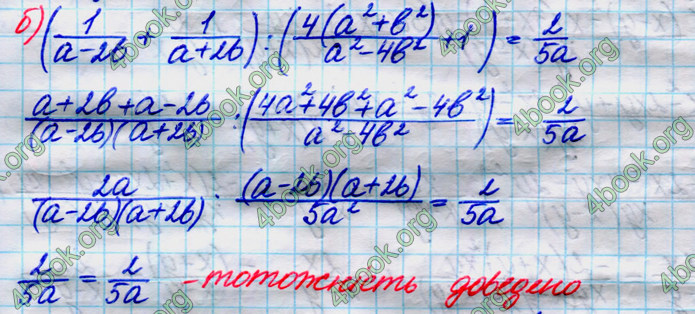 б) (1/(a-2b) + 1/(a+2b)) : (4(a²+b²)/(a²-4b²) + 1) = 2/5a
(a+2b+a-2b)/((a-2b)(a+2b)) : ((4a²+4b²+a²-4b²)/(a²-4b²)) = 2/5a
2a/((a-2b)(a+2b)) · ((a-2b)(a+2b))/5a² = 2/5a
2/5a = 2/5a - тотожність доведено
4book.org